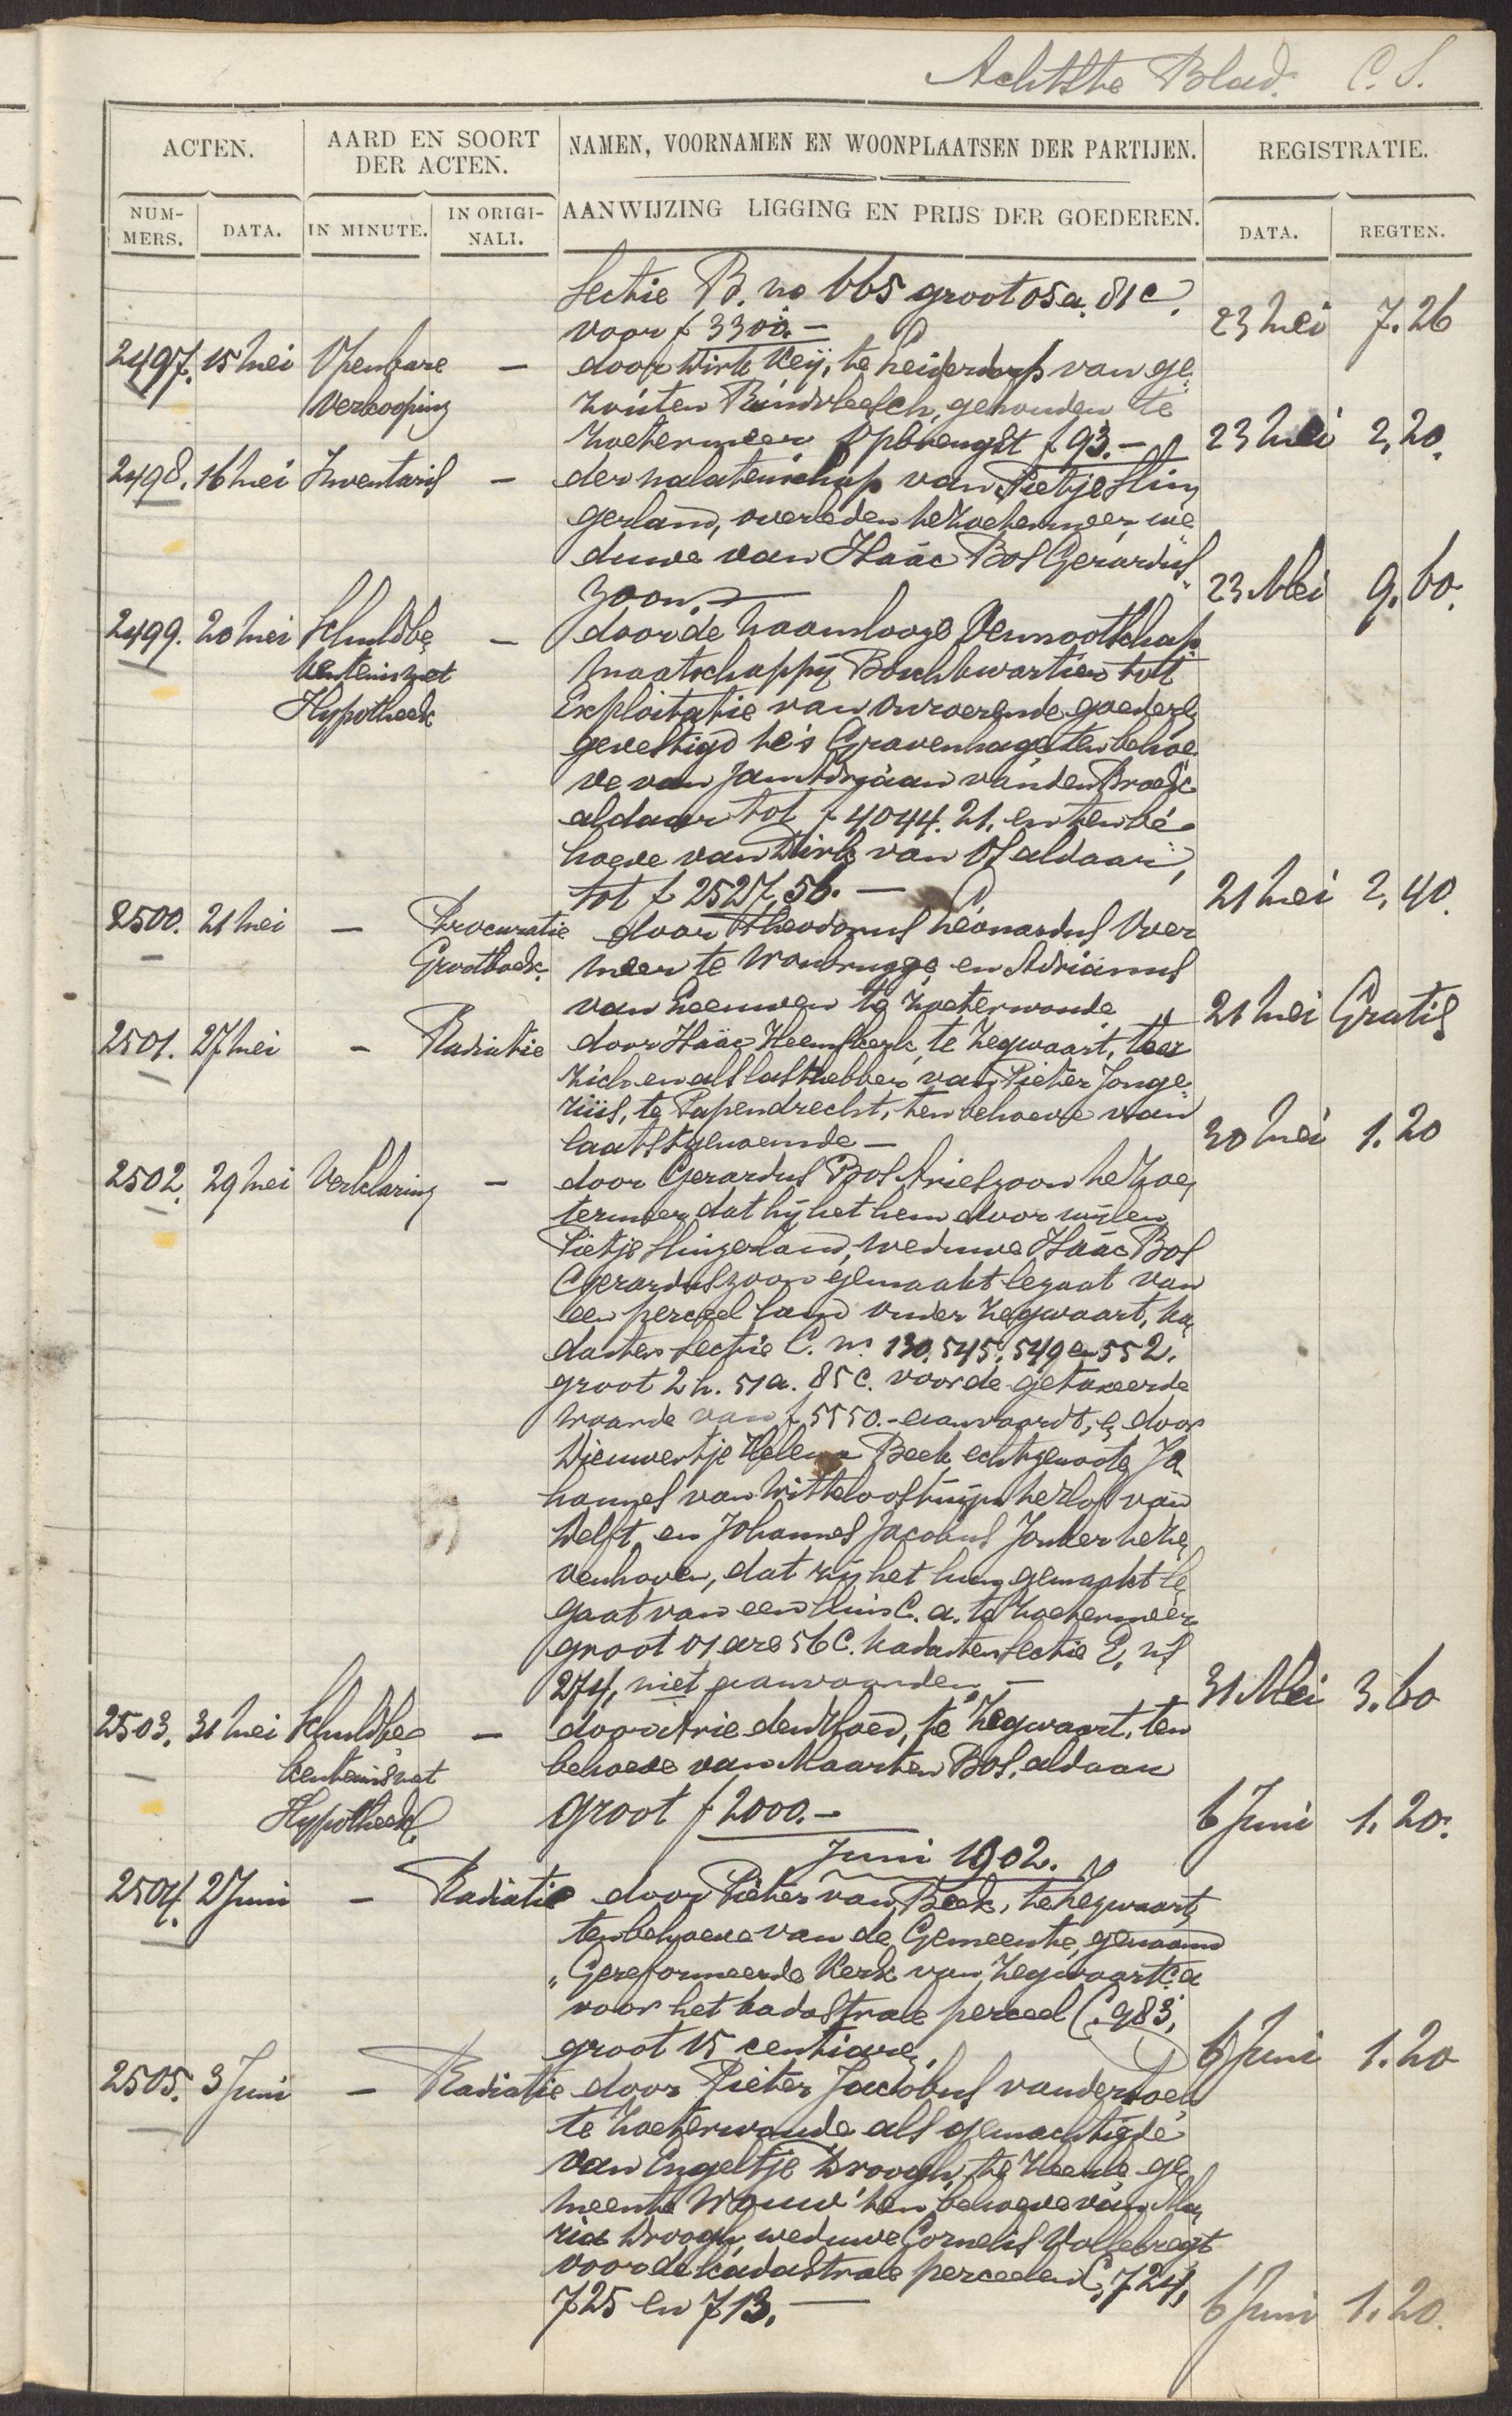 Achtste Blad. C. S.
ACTEN.
AARD EN SOORT
DER ACTEN.
NAMEN, VOORNAMEN EN WOONPLAATSEN DER PARTIJEN.
REGISTRATIE.
NUM-
MERS.
DATA.
IN MINUTE.
IN ORIGI-
NALI.
AANWIJZING LIGGING EN PRIJS DER GOEDEREN.
DATA.
REGTEN.
Sectie B. no 665 groot 05 a. 81 c.
voor f 3300.- 23 Mei 7.26
2497. 15 Mei Openbare - door Dirk Keij, te Leiderdorp van ge-
Verkooping zouten Rundvleesch, gehouden te
Zoetermeer Opbrengst f 93.- 23 Mei 2,20.
2498. 16 Mei Inventaris - der nalatenschap van Pietje Slin
gerland, overleden te Zoetermeer we
duwe van Isaäc Bos Gerardus-
zoon. 23 Mei 9.60.
2499. 20 Mei Schuldbe - door de Naamlooze Vennootschap
kentenis met Maatschappij Bosch kwartier tot
Hypotheek Exploitatie van Onroerende goederen
gevestigd te 's Gravenhage, ten behoe
ve van Jan Adrijaan van den Broek
aldaar tot f 4044.21. en ten be
hoeve van Dirk van Os aldaar,
tot f 2527,56.- 21 Mei 2,40
2500. 21 Mei - Procuratie door Theodorus Leonardus Ver
Grootboek. meer te Woubrugge en Adrianus
van Leeuwen te Zoeterwoude 21 Mei Gratis
2501. 27 Mei - Radiatie door Isaäc Heemskerk, te Zegwaart, voor
zich en als lasthebber van Pieter Jonge-
rius, te Papendrecht, ten behoeve van
laatstgenoemde - 30 Mei 1.20
2502. 29 Mei Verklaring - door Gerardus Bos Arieszoon te Zoe
termeer dat hij het hem door wijlen
Pietje Slingerland, weduwe Isaäc Bos
Gerarduszoon gemaakt legaat van
een perceel land onder Zegwaart, ka
daster sectie C. no. 130, 545, 549 en 552.
groot 2 h. 51 a. 85 c. voor de getaxeerde
waarde van f 5550.- aanvaardt, en door
Diewertje Helena Beek, echtgenoote Jo
hannes van Witteloostuijn te Hof van
Delft en Johannes Jacobus Jonker te Ze
venhoven, dat zij het hun gemaakt le
gaat van een huis c. a. te Zoetermeer
groot 01 are 56 c. kadaster sectie E. no
274, niet aanvaarden. - 31 Mei 3.60
2503. 31 Mei Schuldbe - door Arie den Hoed, te Zegwaart, ten
kentenis met behoeve van Maarten Bos, aldaar
Hypotheek. groot f 2000.- 6 Juni 1.20.
Juni 1902.
2504. 2 Juni - Radiatie door Pieter van Beek, te Zegwaart,
ten behoeve van de Gemeente, genaamd
"Gereformeerde Kerk van Zegwaart c.a
voor het kadastrale perceel C. 983,
groot 15 centiare. 6 Juni 1.20
2505. 3 Juni - Radiatie door Pieter Jacobus van der
te Zoeterwoude als gemachtigde
van Engeltje Droogh, te Heerle ge
meente Wouw, ten behoeve van Ma
ria Droogh, weduwe Cornelis Vollebregt
voor de kadastrale perceelen C, 724,
725 en 713. - 6 Juni 1.20.